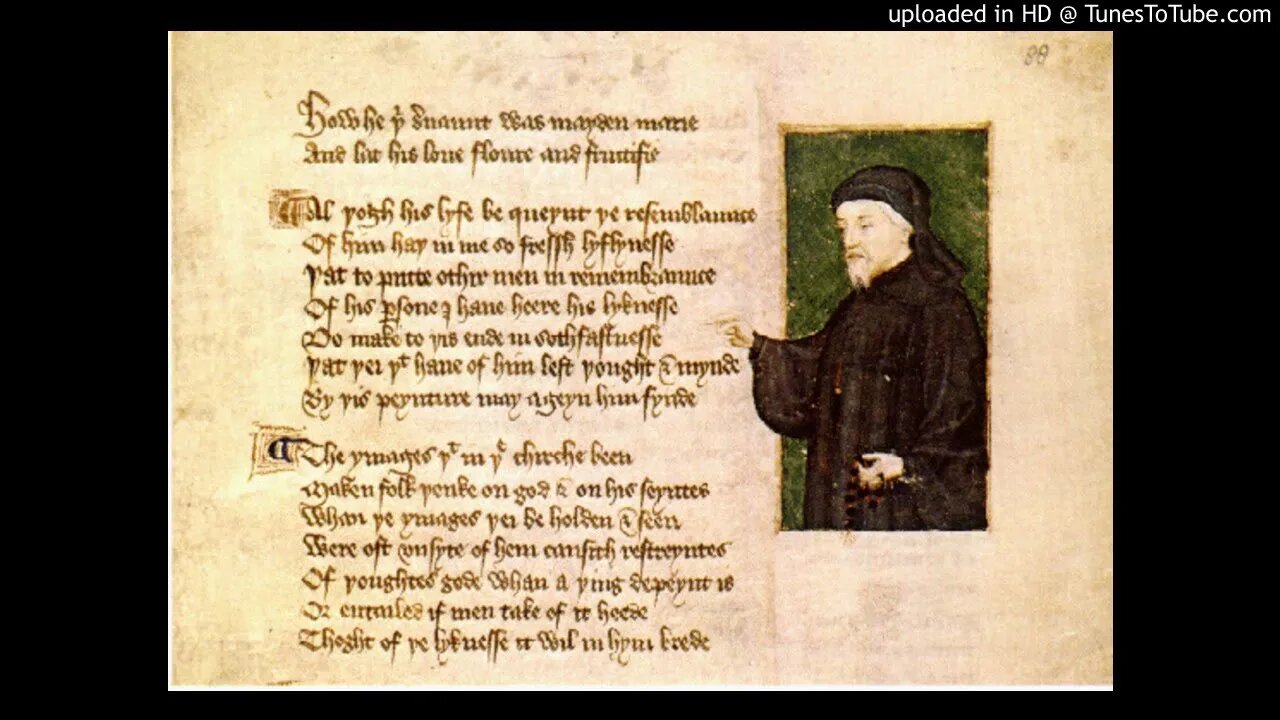 uploaded in HD @ TunesToTube.com
88
How he þͥ ẜuaunt was mayden marie
And lat his loue floure and fructifie
Al þogh his lyfe be queynt þe resemblaunce
Of him haþ in me so fressh lyflynesse
Þat to putte othir men in remembraunce
Of his ꝑsone I haue heere his lyknesse
Do make to þis ende in sothfastnesse
Þat þei þͭ haue of him left þought & mynde
By þis peynture may ageyn him fynde
The ymages þͭ in þͤ chirche been
Maken folk þenke on god & on his seyntes
Whan þe ymages þei be holden & seen
Were oft vnsyte of hem causith restreyntes
Of þoughtes gode whan a þing depeynt is
Or entailed if men take of it heede
Thoght of þe lyknesse it wil in hym brede